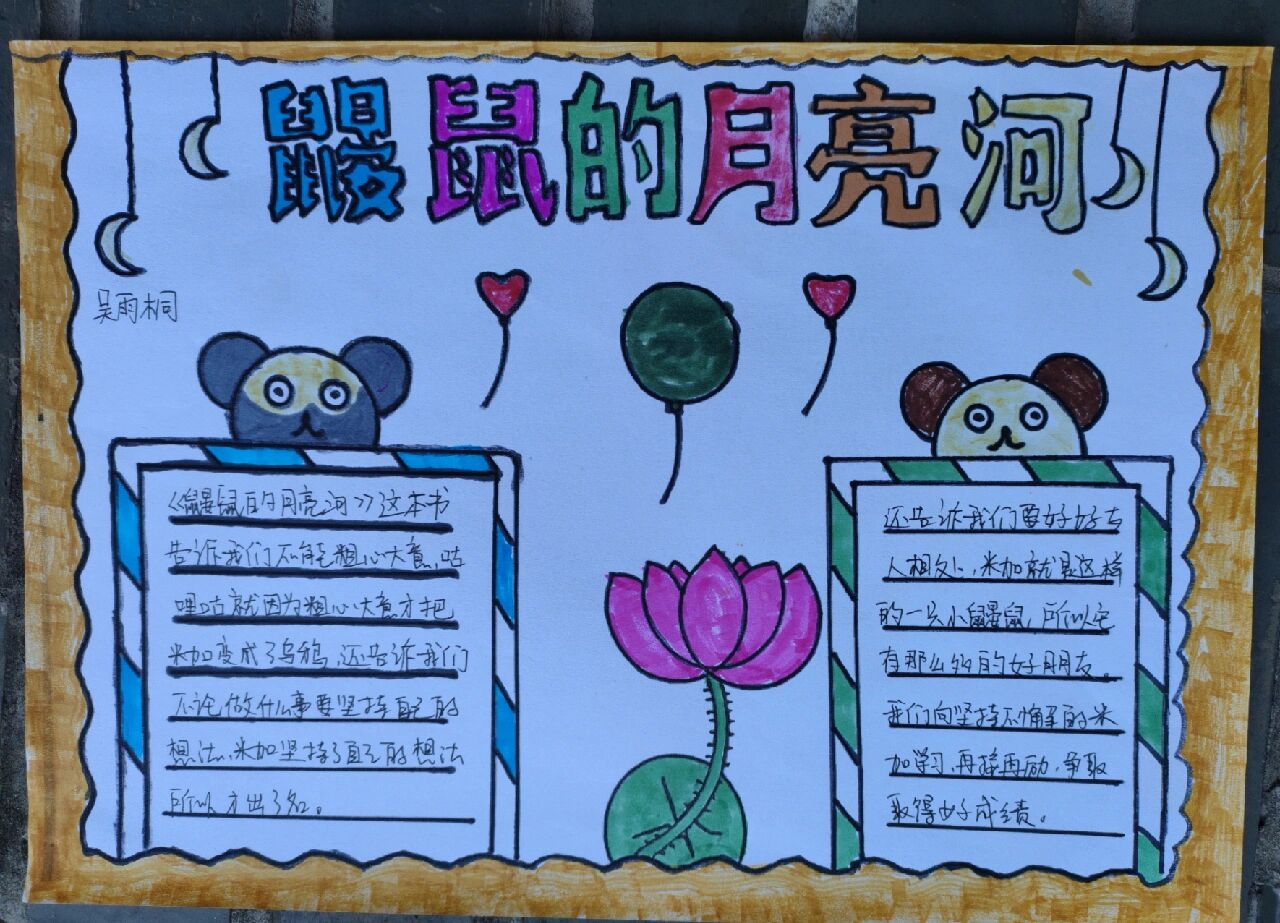 鼹鼠的月亮河
吴雨桐
《鼹鼠的月亮河》这本书
告诉我们不能粗心大意，咕
哩咕就因为粗心大意才把
米加变成了乌鸦，还告诉我们
不论做什么事要坚持自己的
想法，米加坚持了自己的想法
所以才出了名。
还告诉我们要好好与
人相处，米加就是这样
的一只小鼹鼠，所以它
有那么多的好朋友。
我们向坚持不懈的米
加学习，再接再励，争取
取得好成绩。